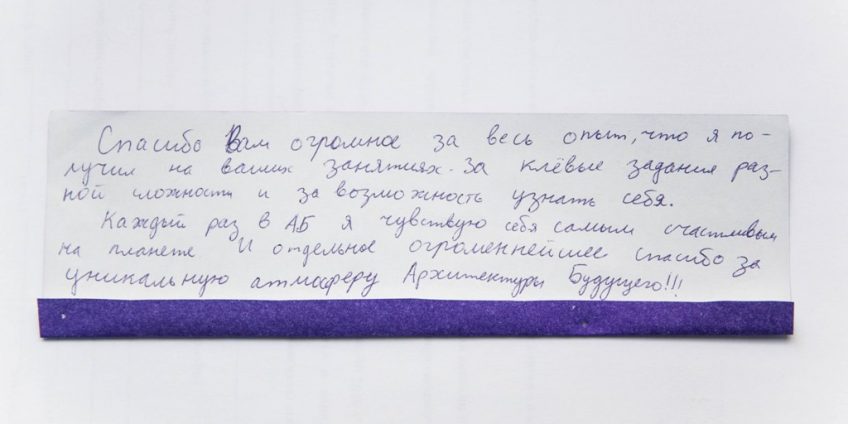 Спасибо Вам огромное за весь опыт, что я по-
лучил на ваших занятиях. За клёвые задания раз-
ной сложности и за возможность узнать себя.
Каждый раз в АБ я чувствую себя самым счастливым
на планете И отдельное огроменнейшее спасибо за
уникальную атмосферу Архитектуры Будущего!!!